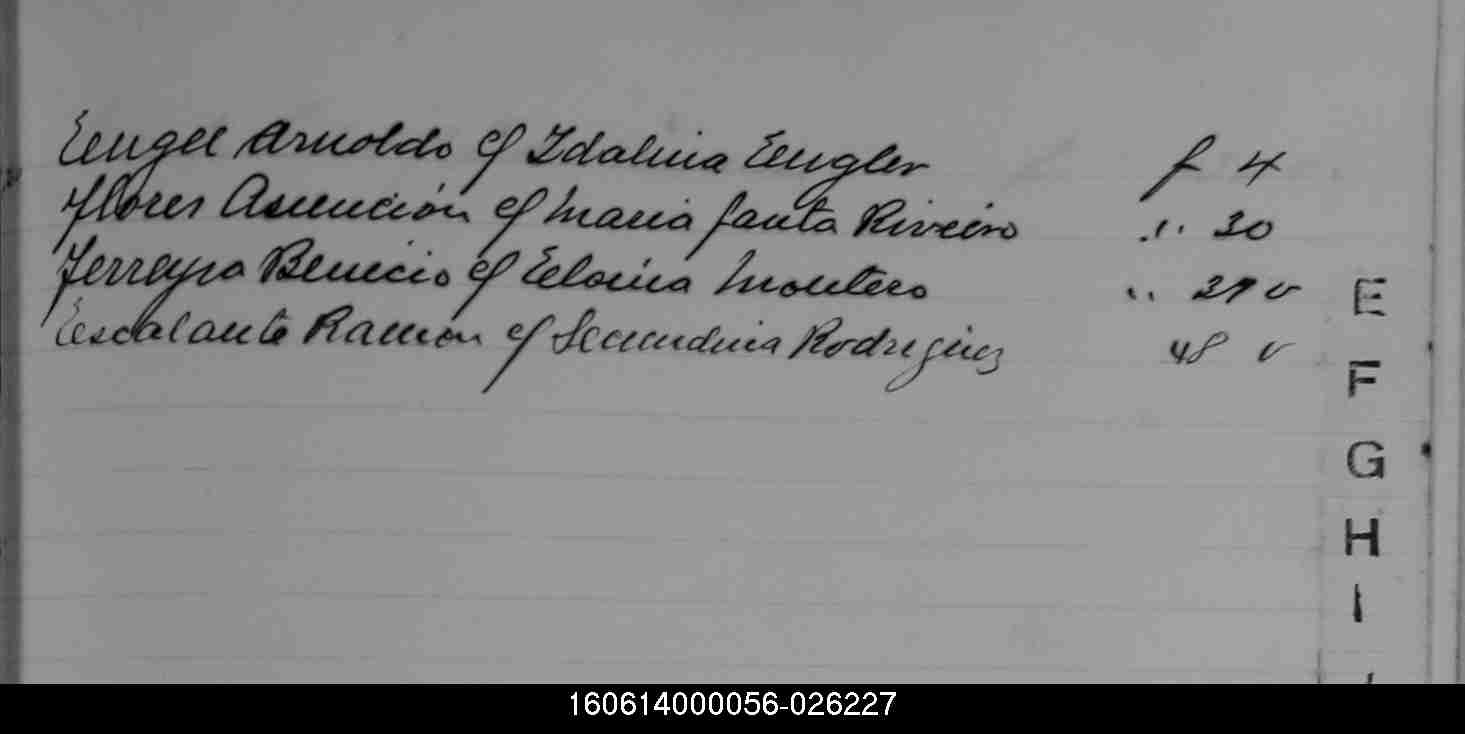 Engel Arnoldo c/ Idalina Engler f 4
Flores Asunción c/ Maria Santa Riveiro .. 30
Ferreyra Benicio c/ Eloina Montero .. 29 v
Escalante Ramón c/ Secundina Rodriguez 48 v
E
F
G
H
I
160614000056-026227